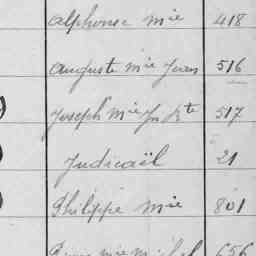 Alphonse Mie 418
Auguste Mie Jean 516
Joseph Mie Jn Bte 517
Judicaël 21
Philippe Mie 801
656